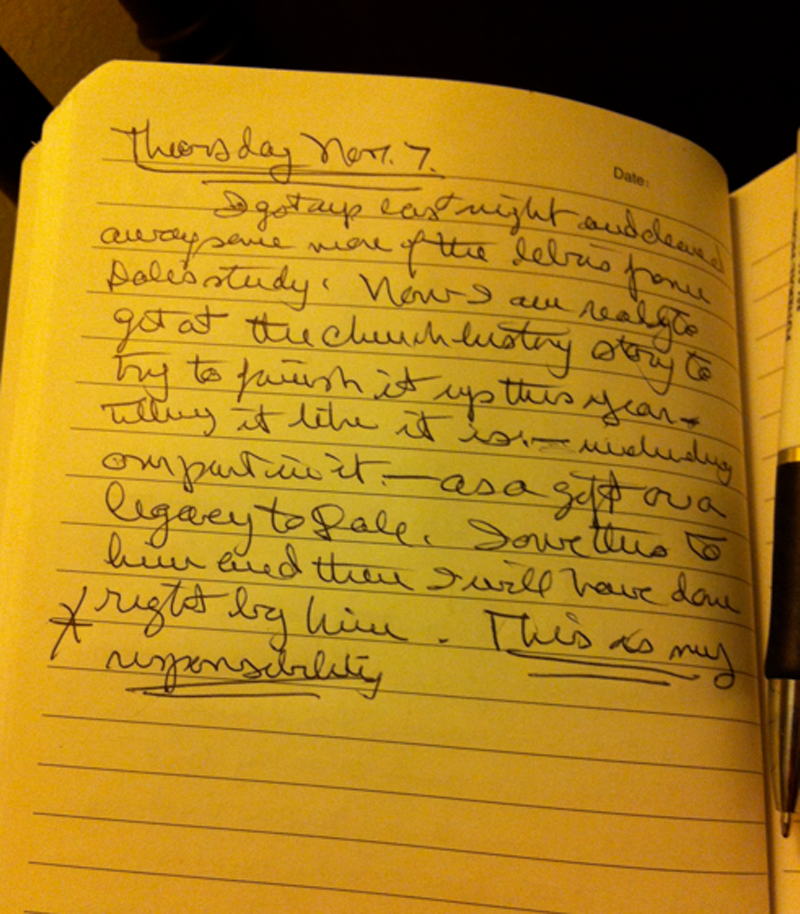 Thursday Nov. 7.
Date:
I got up last night and cleared
away some more of the debris from
Dale's study. Now I am ready to
get at the church history story to
try to finish it up this year -
telling it like it is - including
our part in it. - as a gift or a
legacy to Dale. I owe this to
him and then I will have done
right by him. This is my
responsibility